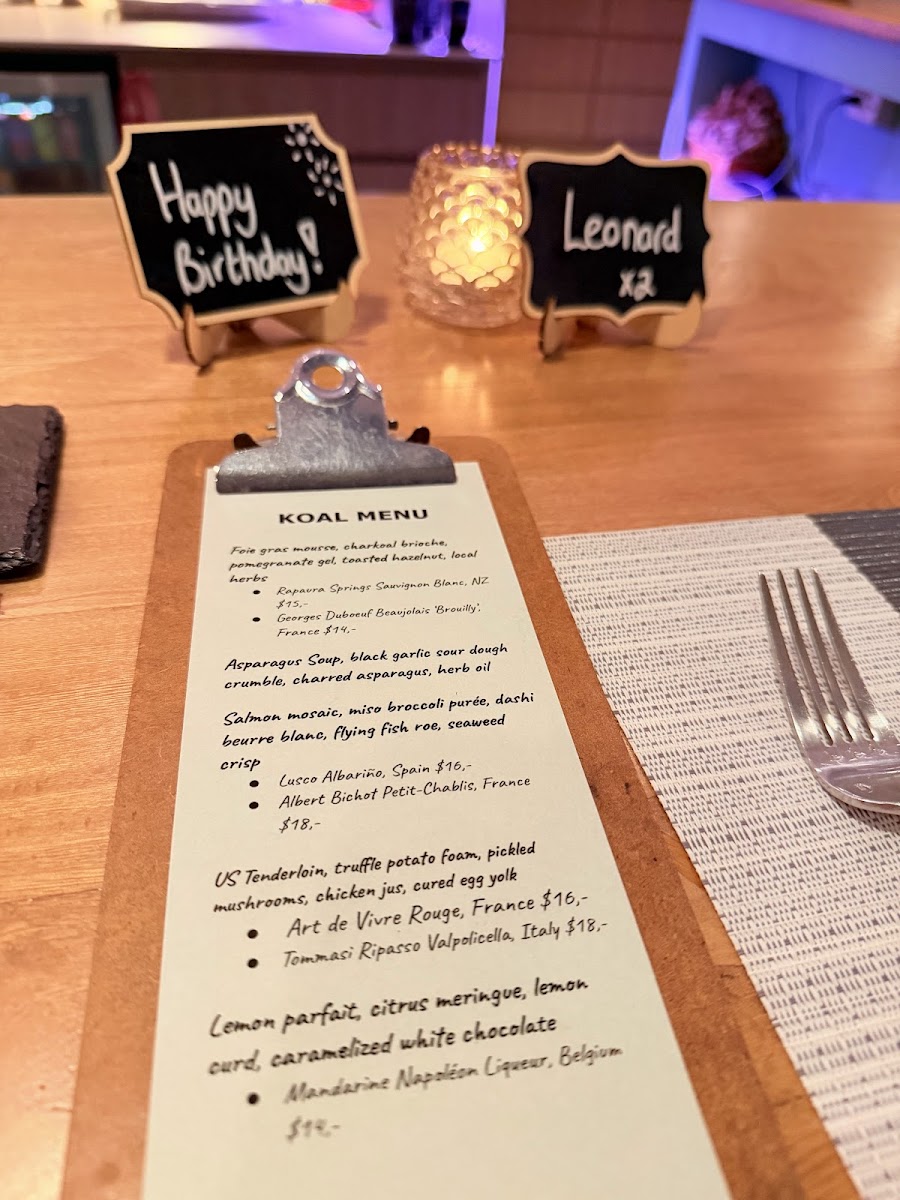 Happy
Birthday!
Leonard
x2
KOAL MENU
Foie gras mousse, charkoal brioche,
pomegranate gel, toasted hazelnut, local
herbs
• Rapaura Springs Sauvignon Blanc, NZ
$15,-
• Georges Duboeuf Beaujolais 'Brouilly',
France $14,-
Asparagus Soup, black garlic sour dough
crumble, charred asparagus, herb oil
Salmon mosaic, miso broccoli purée, dashi
beurre blanc, flying fish roe, seaweed
crisp
• Lusco Albariño, Spain $16,-
• Albert Bichot Petit-Chablis, France
$18,-
US Tenderloin, truffle potato foam, pickled
mushrooms, chicken jus, cured egg yolk
• Art de Vivre Rouge, France $16,-
• Tommasi Ripasso Valpolicella, Italy $18,-
Lemon parfait, citrus meringue, lemon
curd, caramelized white chocolate
• Mandarine Napoléon Liqueur, Belgium
$14,-